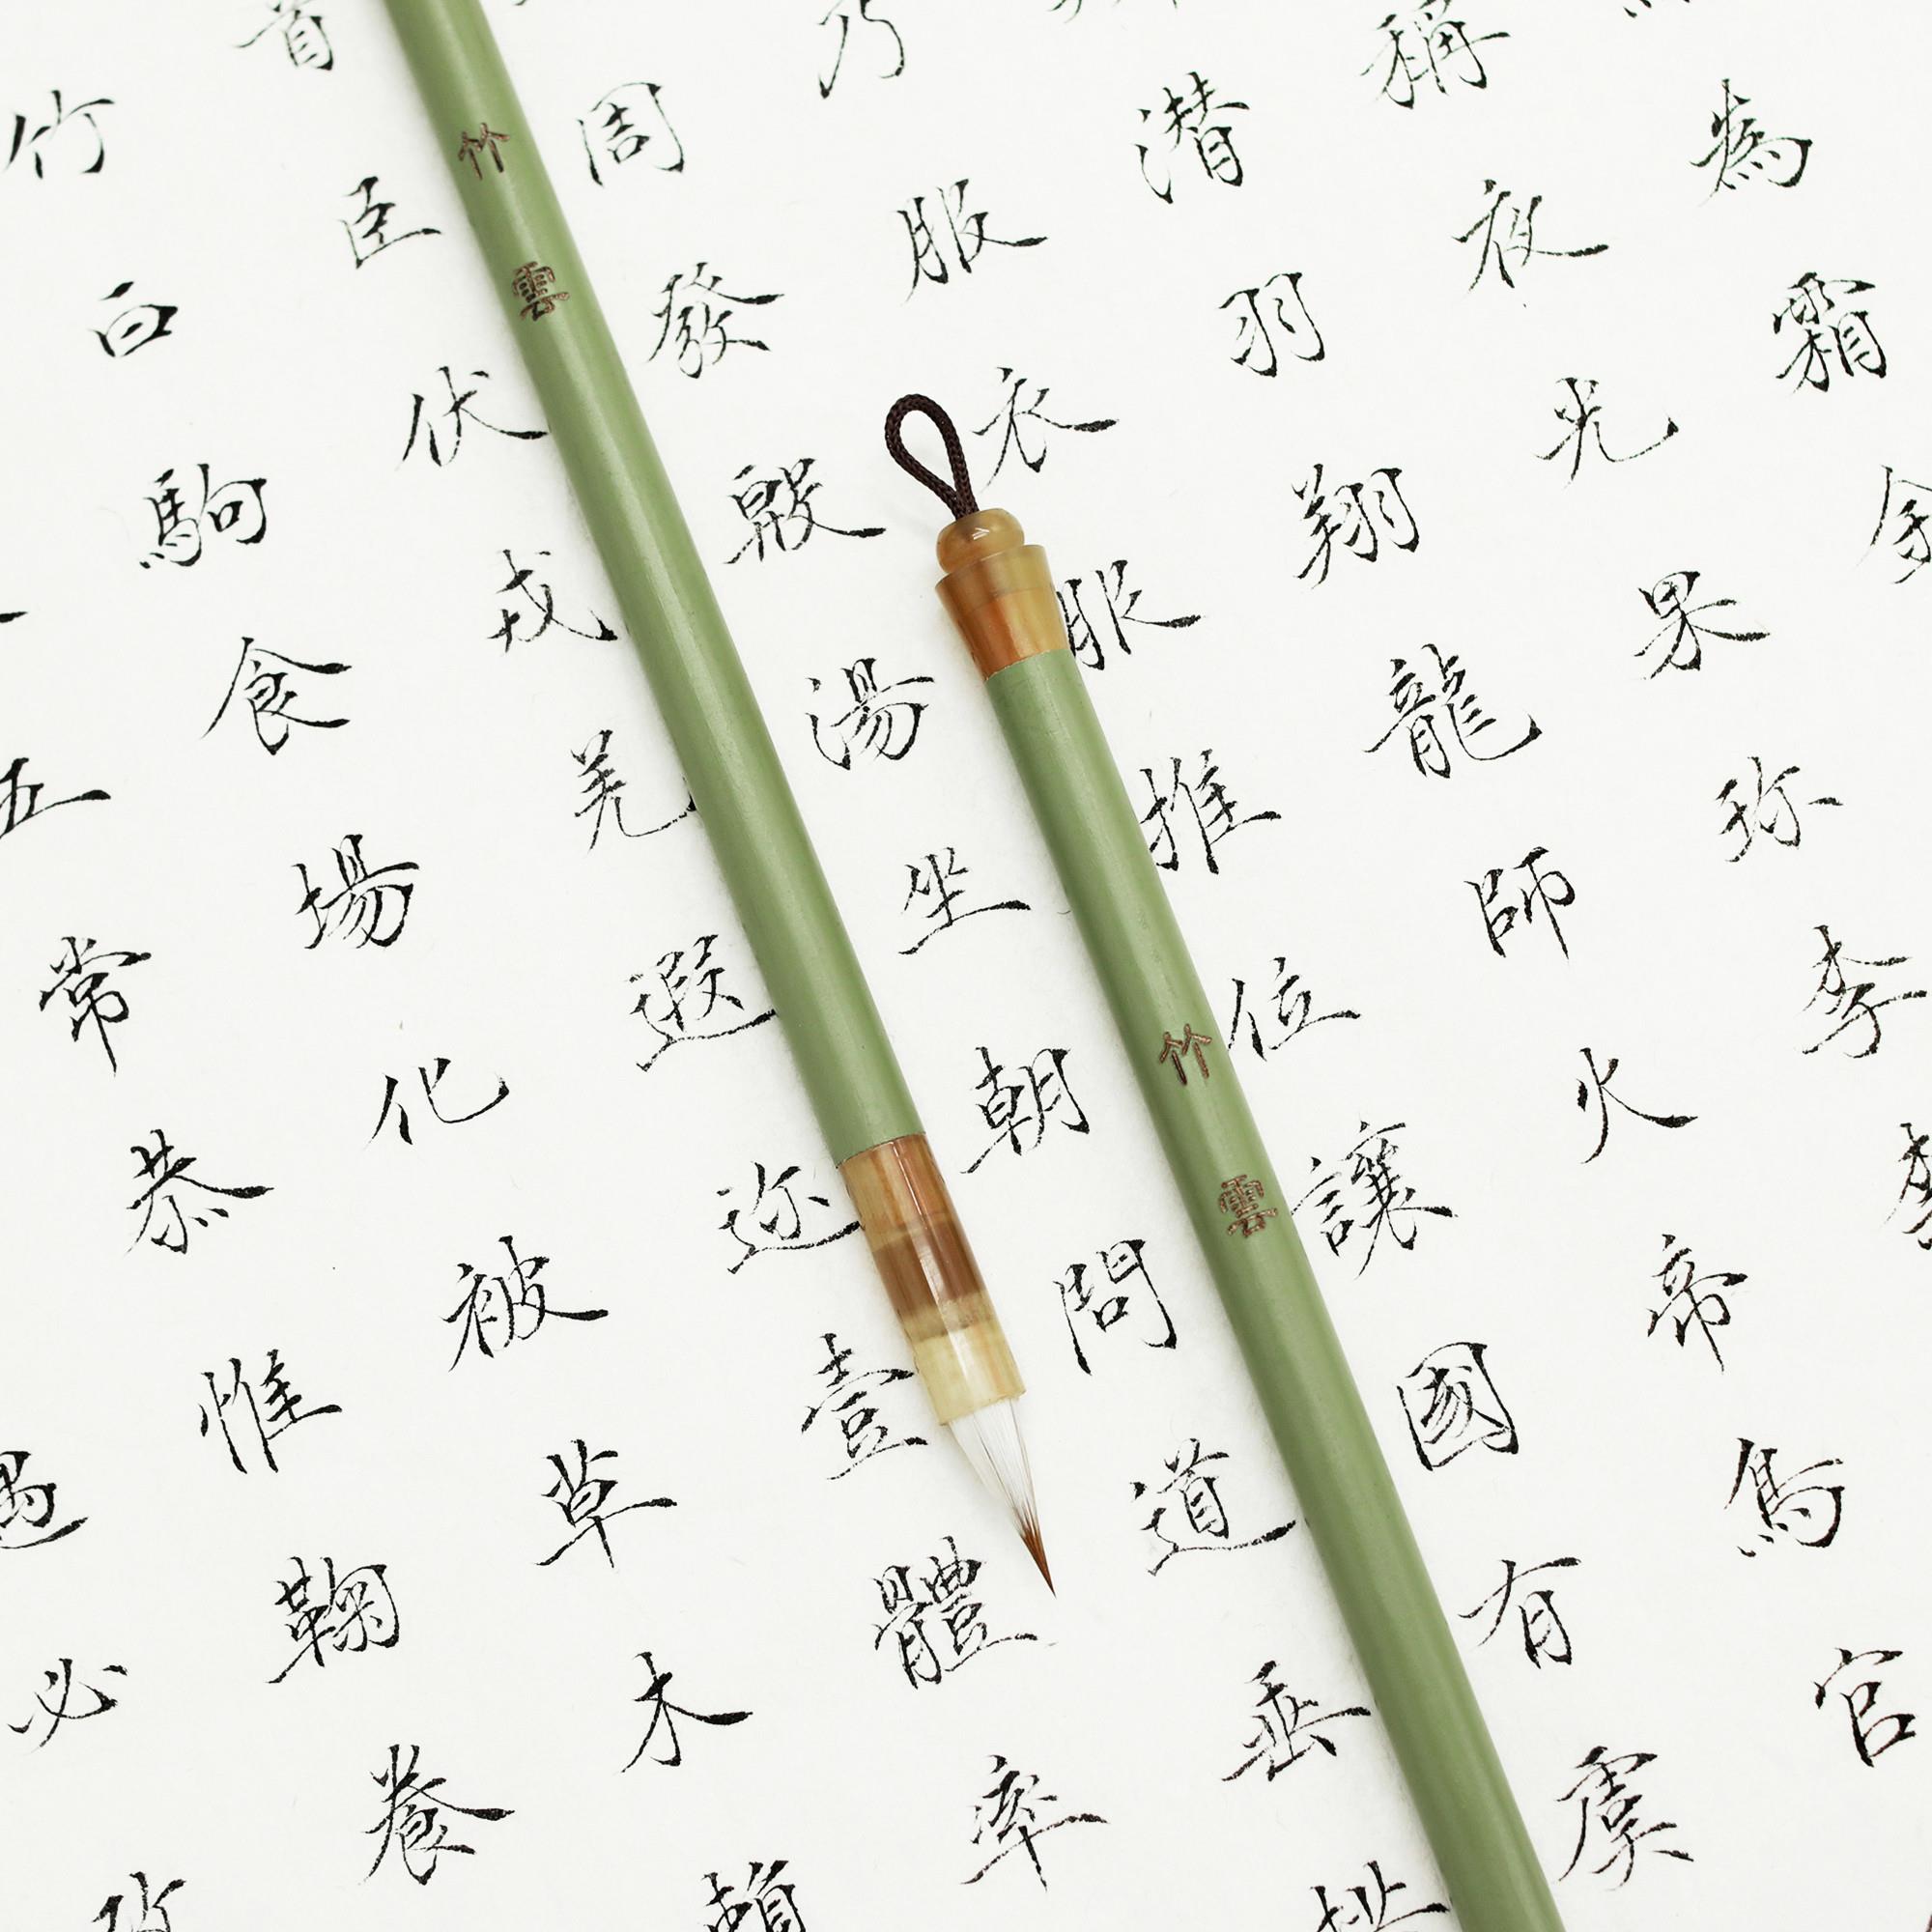 為霜金
稱夜光果珎李
潜羽翔龍師火帝鳥官
乃服衣服推位讓國有虞
周發殷湯坐朝問道垂拱
首臣伏戎羌遐迩壹體率
竹白駒食場化被草木賴
五常恭惟鞠養
過必改
竹雲
竹雲